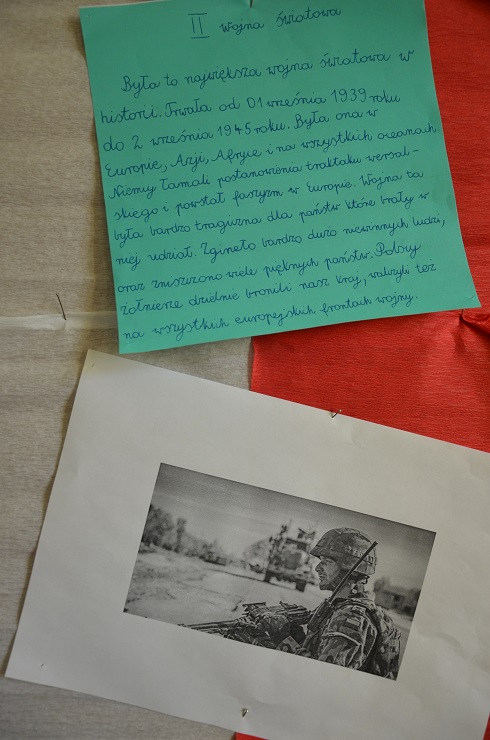 II Wojna światowa
Była to największa wojna światowa w
historii. Trwała od 01 września 1939 roku
do 2 września 1945 roku. Była ona w
Europie, Azji, Afryce i na wszystkich oceanach.
Niemcy łamali postanowienia traktatu wersal-
skiego i powstał faszyzm w Europie. Wojna ta
była bardzo tragiczna dla państw które brały w
niej udział. Zginęło bardzo dużo niewinnych ludzi,
oraz zniszczono wiele pięknych państw. Polscy
żołnierze dzielnie bronili nasz kraj, walczyli też
na wszystkich europejskich frontach wojny.